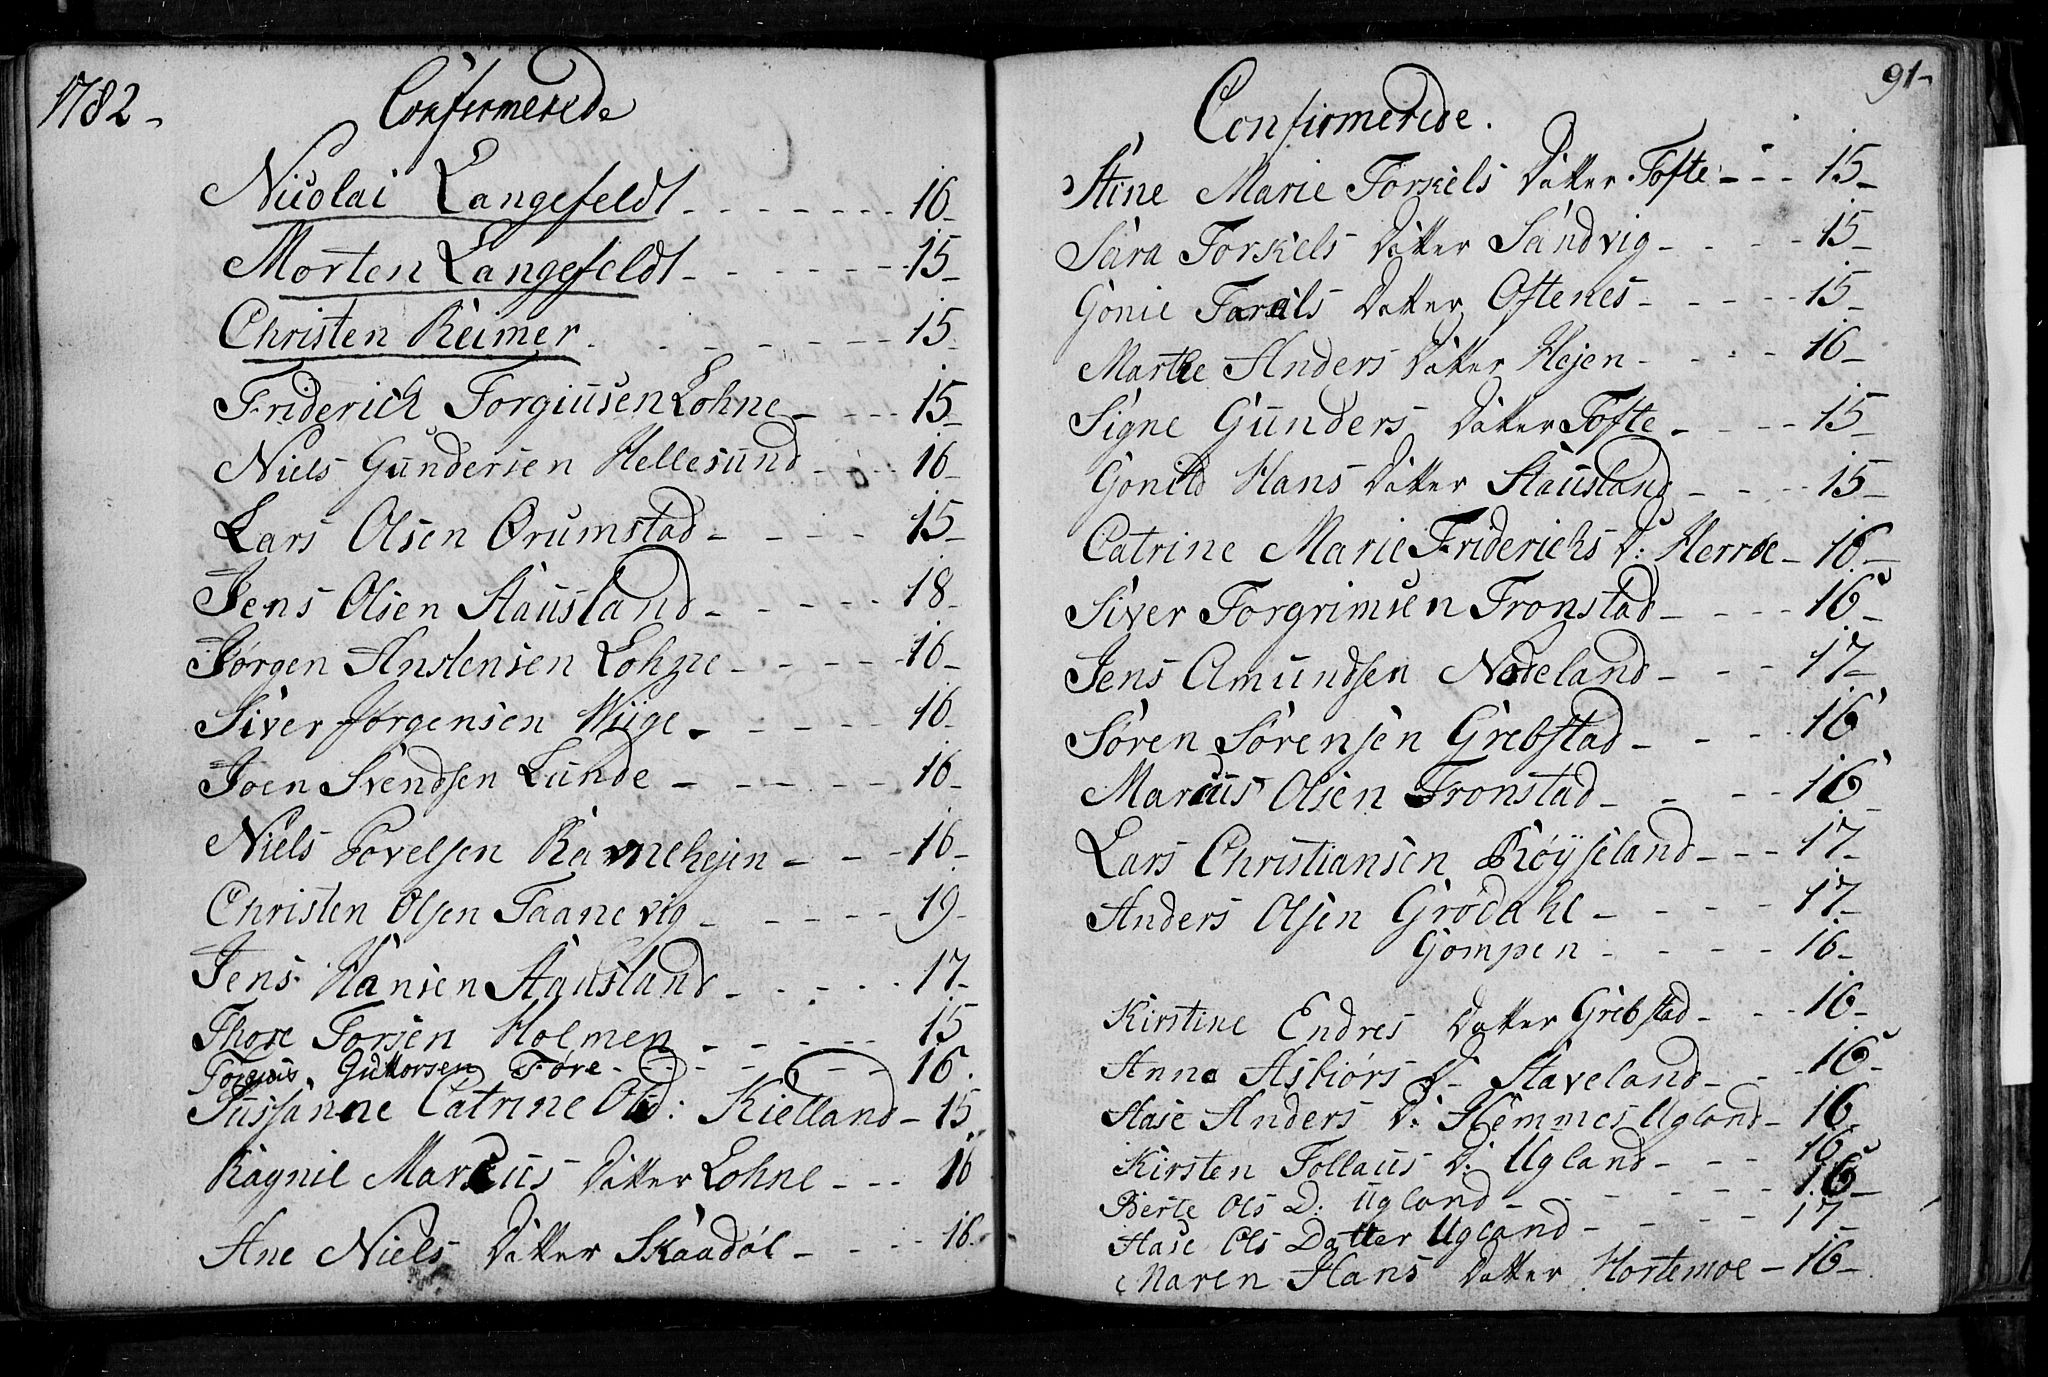 1782 -
Confirmerede
Nicolai Langefeldt - - - - - - - 16 -
Morten Langefeldt - - - - - - - 15 -
Christen Reimer - - - - - - - 15 -
Friderich Torgiusen Lohne - - - - 15 -
Niels Gundersen Hellesund - - - 16 -
Lars Olsen Ørumstad - - - - 15 -
Jens Olsen Stausland - - - - - 18 -
Jørgen Anstensen Lohne - - - - - 16 -
Siver Jørgensen Wiige - - - - - 16 -
Joen Svendsen Lunde - - - - - 16 -
Niels Povelsen Ravnehejen - - - 16 -
Christen Olsen Taanevig - - - - - 19 -
Jens Hansen Stausland - - - - - 17 -
Thore Torsen Holmen - - - - - 15
Torgius Guttorsen Føre - - - - - - 16.
Sussanne Catrine Ols D: Kielland - 15
Ragnil Marcus Datter Lohne - - - 16
Ane Niels Datter Skaadøl - - - - 16 -
91 -
Confirmerede.
Stine Marie Torkels Datter Tofte - - - 15 -
Sara Torkels Datter Sandvig - - - - 15 -
Gonil Datter Oftenes - - - - - 15 -
Marthe Anders Datter Hejen - - - - 16 -
Signe Gunders Datter Tofte - - - - 15 -
Gonild Hans Datter Stausland - - - - 15 -
Catrine Marie Friderichs D: Herroe - 16 -
Siver Torgrimsen Tronstad - - - - 16 -
Jens Amundsen Nodeland - - - 17 -
Søren Sørensen Grebstad - - - - 16
Marcus Olsen Tronstad - - - - 16 -
Lars Christiansen Røyseland - - - 17 -
Anders Olsen Grødahl - - - - 17 -
Gompen - - - - - 16 -
Kirstine Endres Datter Grebstad - - - 16 -
Anna Asbiørs D - Staveland - - - 16 -
Aase Anders D: Hemmes Ugland - 16
Kirsten Tollaus D: Ugland - - - 16
Berte Ols D: Ugland - - - - - - 16 -
Aase Ols Datter Ugland - - - - - 17 -
Maren Hans Datter Hortemoe - 16 -